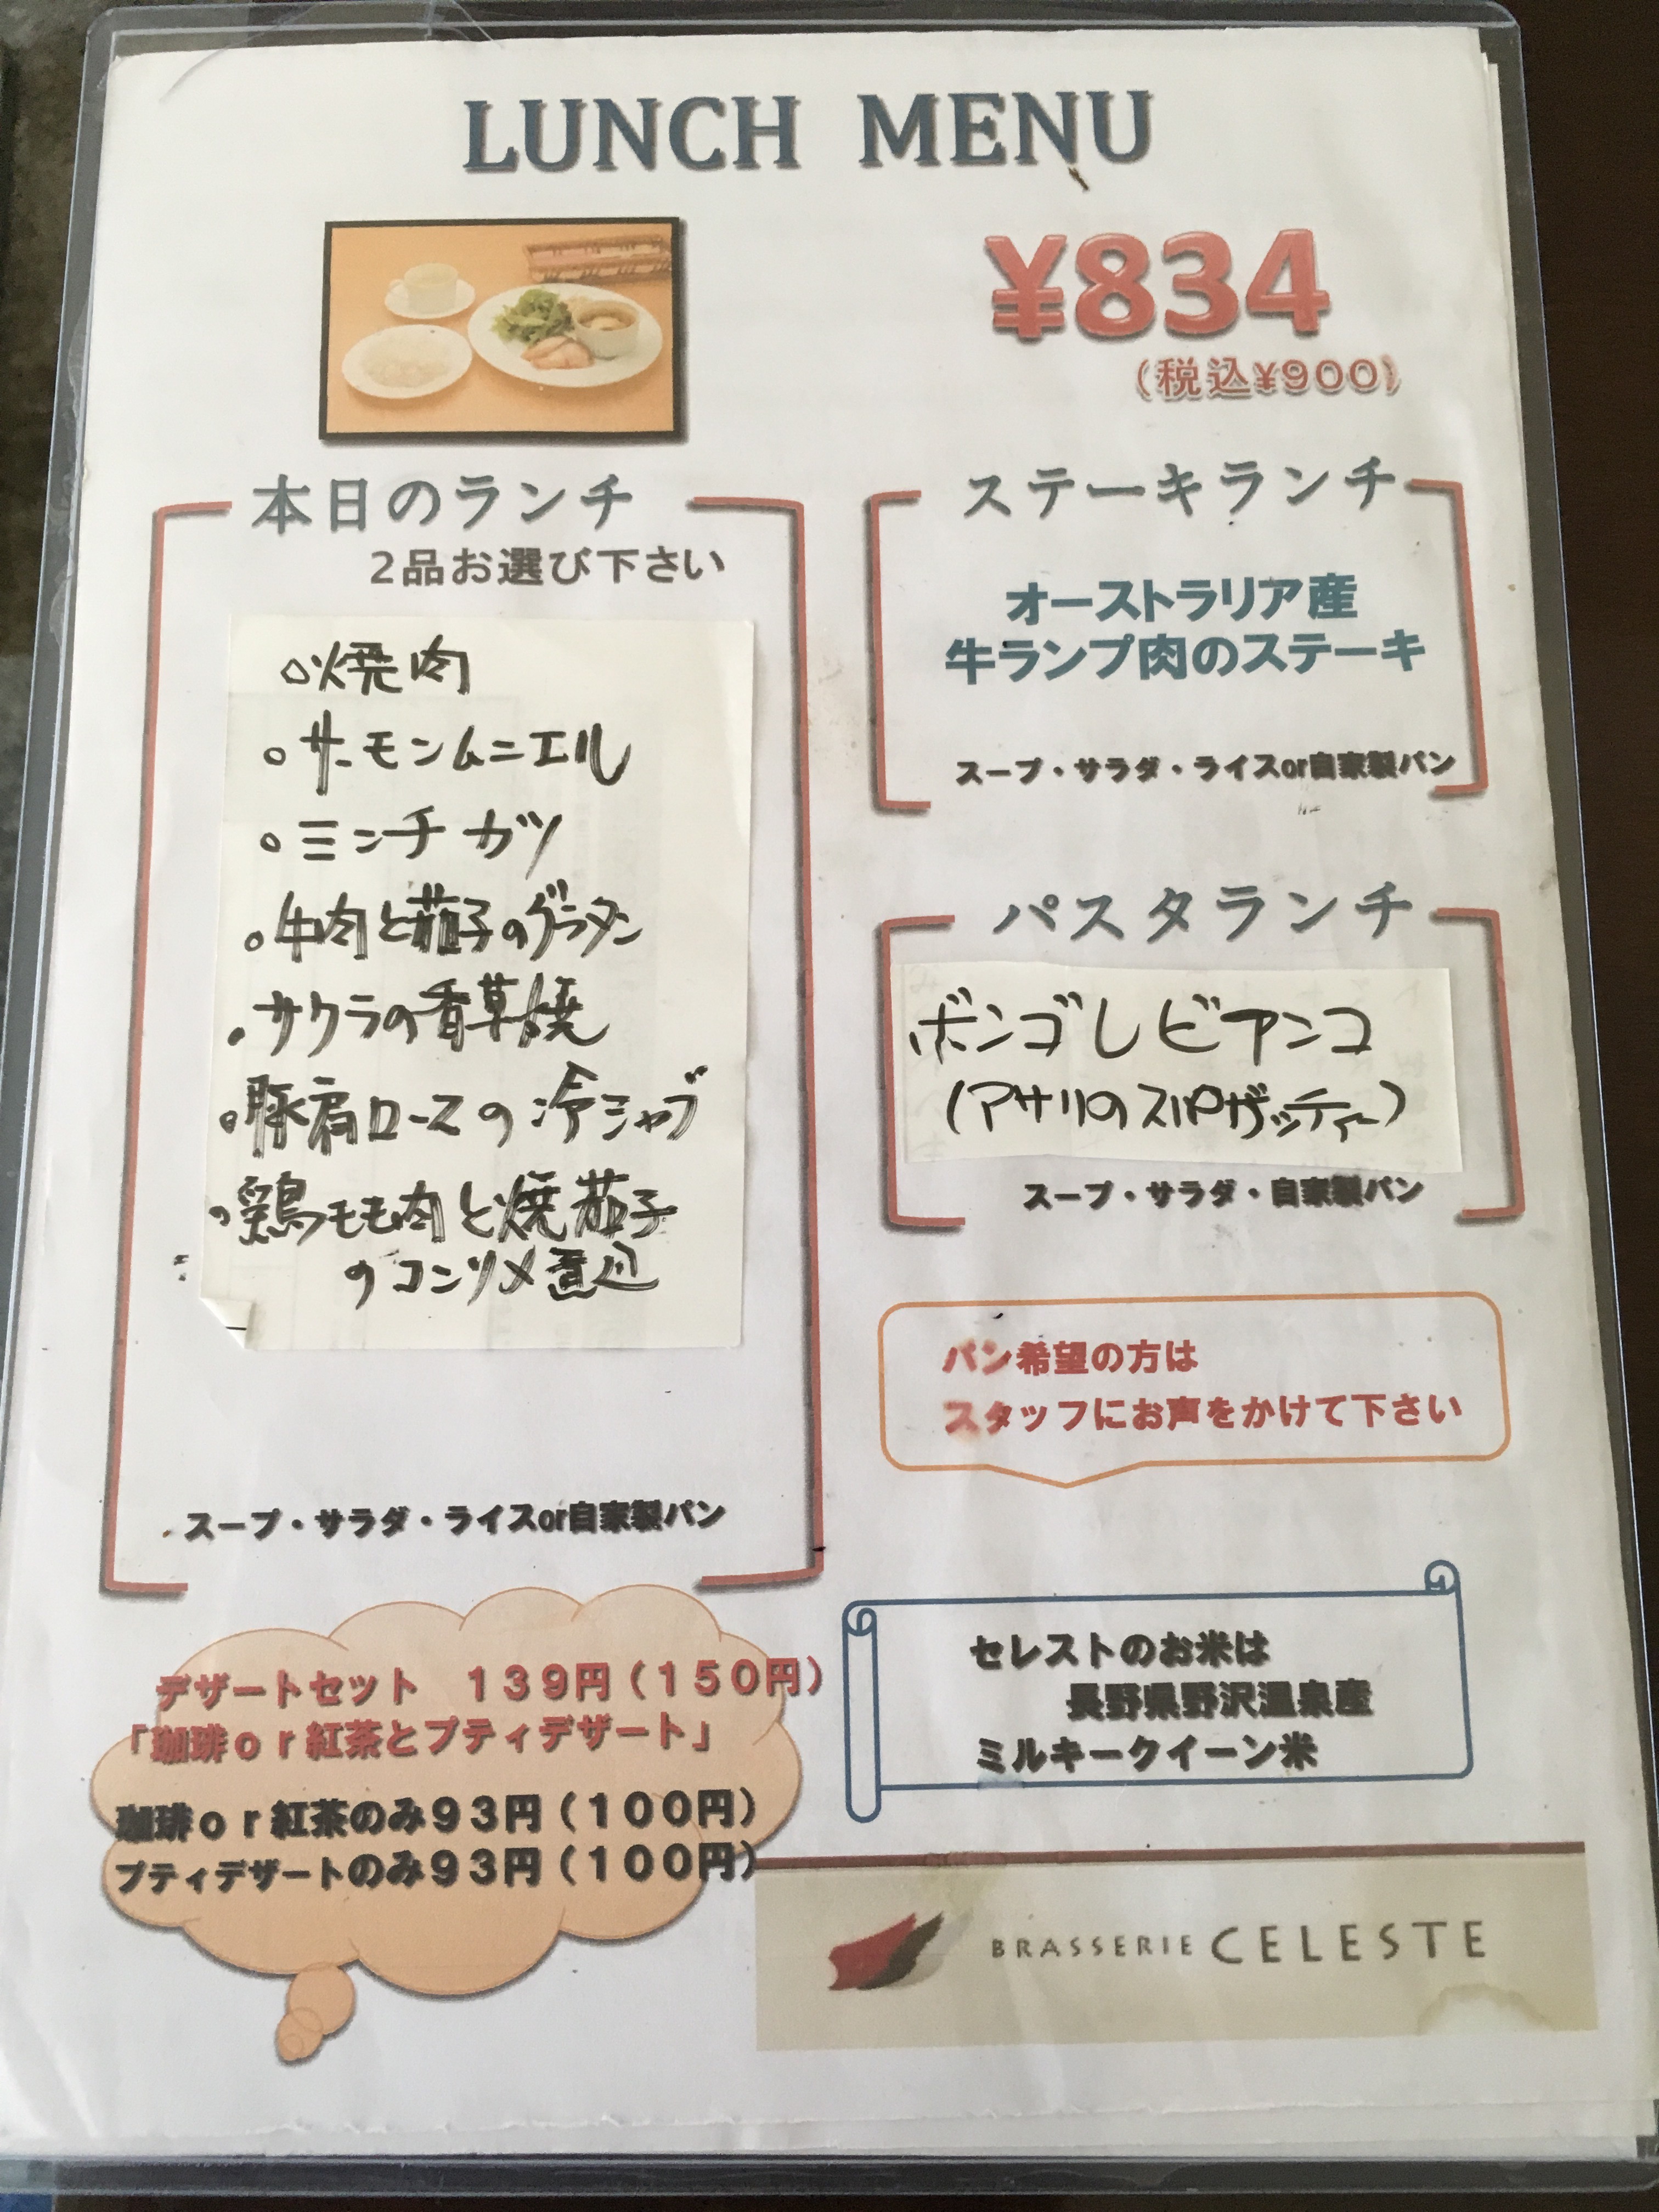 LUNCH MENU
¥834
（税込¥900）
本日のランチ
2品お選び下さい
○焼肉
○サーモンムニエル
○ミンチカツ
○牛肉と茄子のグラタン
・サクラの香草焼
○豚肩ロースの冷シャブ
○鶏モモ肉と焼茄子
のコンソメ煮込
スープ・サラダ・ライスor自家製パン
ステーキランチ
オーストラリア産
牛ランプ肉のステーキ
スープ・サラダ・ライスor自家製パン
パスタランチ
ボンゴレビアンコ
(アサリのスパゲッティー)
スープ・サラダ・自家製パン
パン希望の方は
スタッフにお声をかけて下さい
デザートセット　１３９円（１５０円）
「珈琲ｏｒ紅茶とプティデザート」
珈琲ｏｒ紅茶のみ９３円（１００円）
プティデザートのみ９３円（１００円）
セレストのお米は
長野県野沢温泉産
ミルキークイーン米
BRASSERIE CELESTE